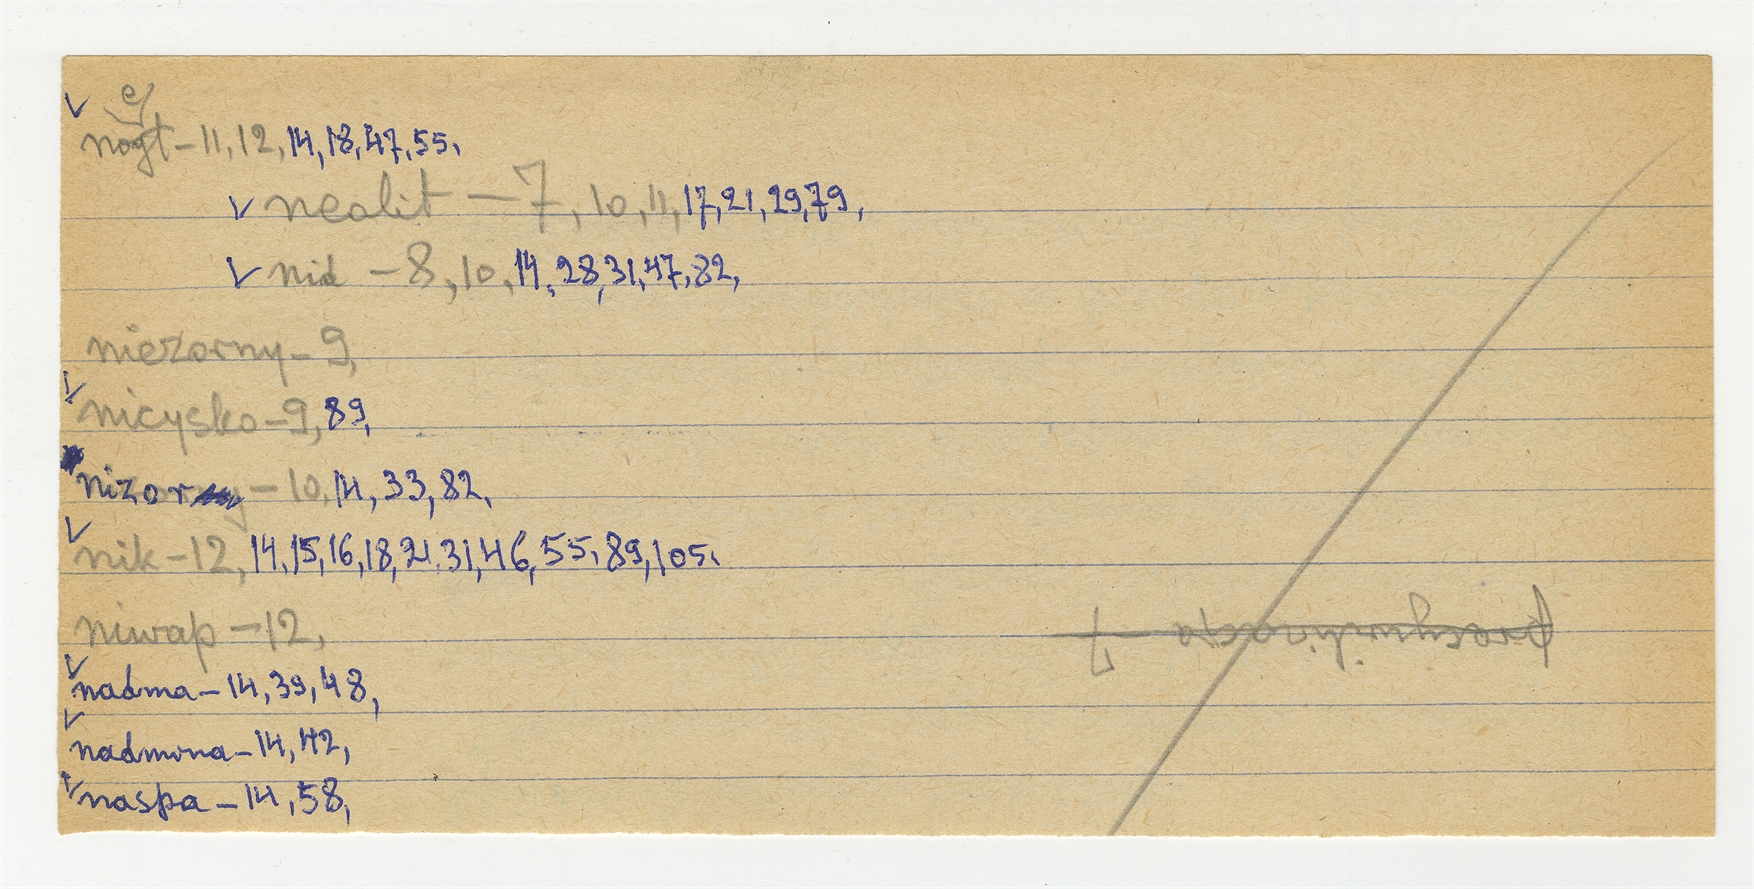 e
nogt – 11, 12, 14, 18, 47, 55,
nealit – 7, 10, 11, 17, 21, 29, 79,
nid – 8, 10, 14, 28, 31, 47, 82,
niezorny – 9,
nicysko – 9, 89,
nizor – 10, 14, 33, 82,
nik – 12, 14, 15, 16, 18, 21, 31, 46, 55, 89, 105,
niwap – 12,
nadma – 14, 39, 48,
nadmorna – 14, 42,
naspa – 14, 58,